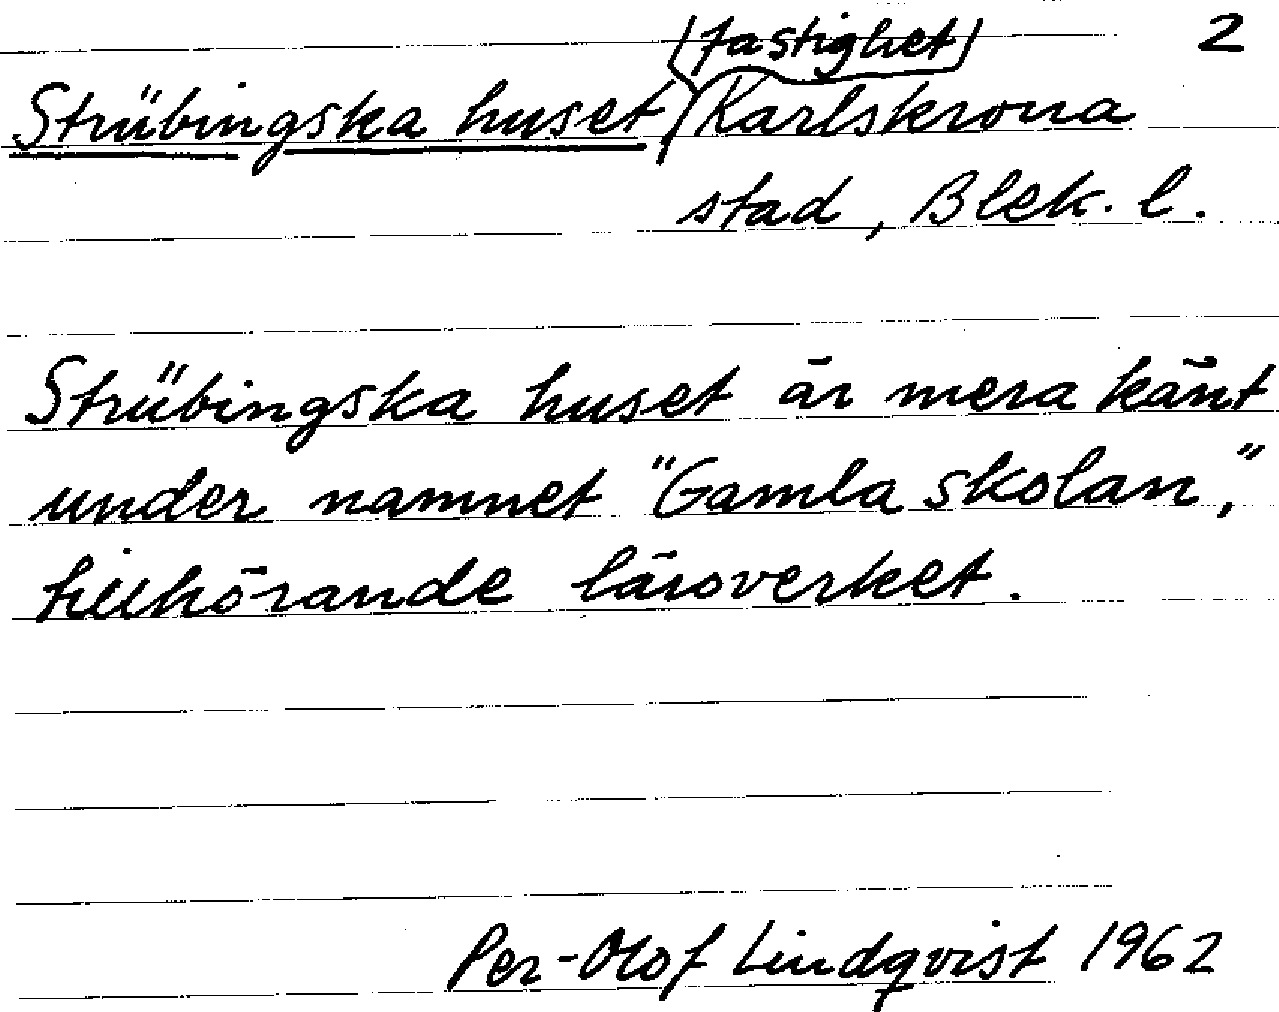 (fastighet) 2
Strübingska huset, Karlskrona
stad, Blek. l.
Strübingska huset är mera känt
under namnet "Gamla skolan,"
tillhörande läroverket.
Per-Olof Lindqvist 1962